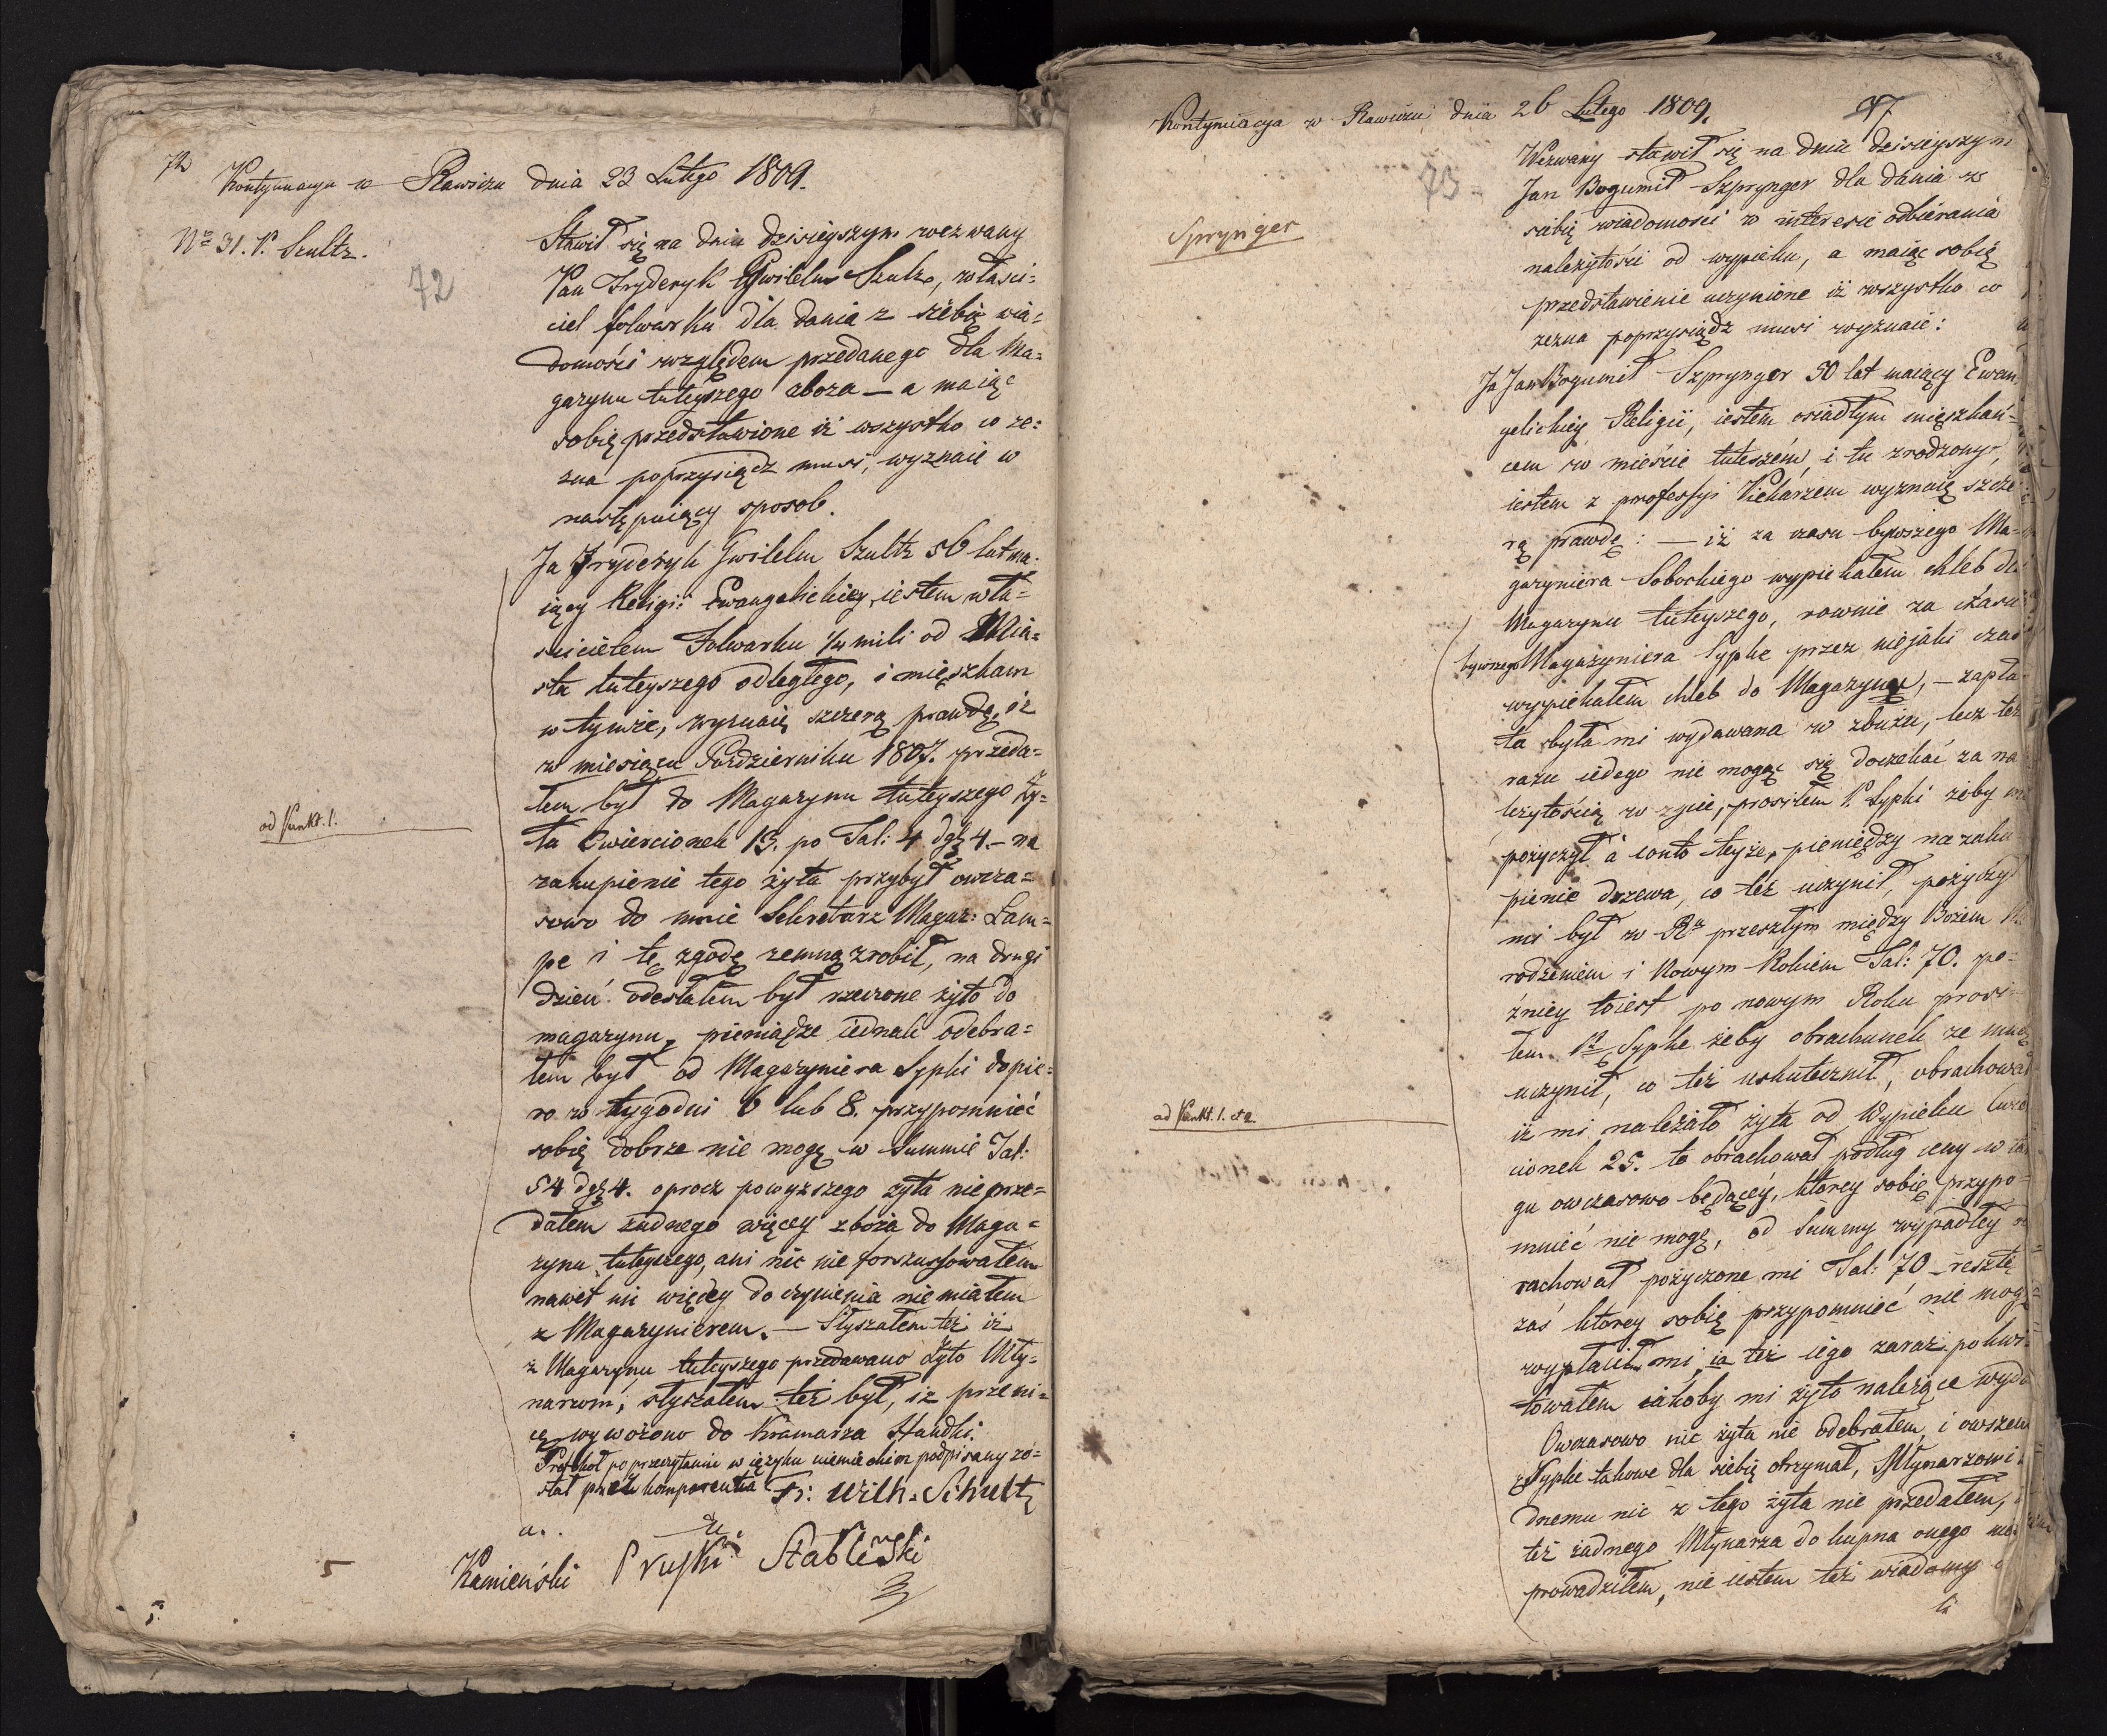 72
Kontynuacya w Rawiczu dnia 23 Lutego 1809.
No 31. P. Szultz.
72
Stawił się na dniu dzisieyszym wezwany
Pan Fryderyk Gwilelm Szultz, właści=
ciel folwarku dla dania z siebie wia=
domości względem przedanego dla Ma=
gazynu tuteyszego zboza — a maiąc
sobię przedstawione iż wszystko co ze=
zna poprzysiądz musi, wyznaie w
następuiący sposob.
Ja Fryderyk Gwilelm Szultz 56 lat ma=
iący Religii Ewangelickiey, iestem wła=
scicielem Folwarku 1/4 mili od Mia=
sta tuteyszego odległego, i mięszkam
w tymże, wyznaię szczerą prawdę, iż
w miesiącu Pazdzierniku 1807. przeda=
łem był do Magazynu tuteyszego Ży=
ta Cwiercionek 13. po Tal: 4 dgr 4. — na
zakupienie tego żyta przybył owcza=
sowo do mnie Sekretarz Magaz: Lam=
pe i tę zgodę zemną zrobił, na drugi
dzień odesłałem był rzeczone żyto do
magazynu, pieniądze iednak odebra=
łem był od Magazyniera Sypki dopie=
ro w tygodni 6 lub 8. przypomnieć
sobię dobrze nie mogę w Summie Tal:
54 dgr 4. oprocz powyzszego żyta nie prze=
dałem żadnego więcey zboża do Maga=
zynu tuteyszego, ani nic nie forszussowałem
nawet nic więcey do czynienia nie miałem
z Magazynierem. — Słyszałem też iż
z Magazynu tuteyszego przedawano Żyto Mły=
narzom, słyszałem też był, iż przeni=
cę wywożono do Kramarza Staudki.
Protokoł po przeczytaniu w ięzyku niemieckim podpisany zo=
stał przez komparenta Fr: Wilh. Schultz
a. u.
Kamieński Pruski Stablewski
od Punkt. 1.
5
Kontynuacya w Rawiczu dnia 26 Lutego 1809.
73
Sprynger
Wezwany stawił się na dniu dzisieyszym
Jan Bogumił Szprynger dla dania z
siebię wiadomości w interesie odbierania
należytości od wypieku, a maiąc sobię
przedstawienie uczynione iż wszystko co
zezna poprzysiądz musi wyznaie:
Ja Jan Bogumił Szprynger 50 lat maiący Ewan
gelickiey Religii, iestem osiadłym mięszkań=
cem w mieście tuteszém, i tu zrodzony,
iestem z professyi Piekarzem wyznaię szcze
rą prawdę: — iż za czasu bywszego Ma=
gazyniera Sobockiego wypiekałem chleb do
Magazynu tuteyszego, rownie za czasu
bywszego Magazyniera Sypke przez niejaki czas
wypiekałem chleb do Magazynu, — zapła
ta była mi wydawana w zbożu, lecz też
razu iednego nie mogąc się doczekać za na
leżytością w życie, prosiłem P. Sypki żeby mi
pożyczył à conto teyże, pieniędzy na zaku
pienie drzewa, co też uczynił, pożyczył
mi był w Ru przeszłym między Bożem Na
rodzeniem i Nowym Rokiem Tal: 70. po=
źniey toiest po nowym Roku prosi=
łem P. Sypke żeby obrachunek ze mną
uczynił, co też uskutecznił, obrachował
iż mi należało żyta od Wypieku Cwier
cionek 25. to obrachował podług ceny w tar
gu owczasowo będącéy, ktorey sobię przypo=
mnieć nie mogę, od Summy wypadłey
rachował pożyczone mi Tal: 70 resztę
zaś ktorey sobię przypomnieć nie mogę
wypłacił mi, ia też iego zaraz pokwi=
towałem iakoby mi żyto należące wyda
Owczasowo nic żyta nie odebrałem, i owszem
Sypke takowe dla siebię otrzymał, Młynarzowi
dnemu nic z tego żyta nie przedałem,
też żadnego Młynarza do kupna onego nie
prowadziłem, nie iestem też wiadomy
ad Punkt. 1. et 2.